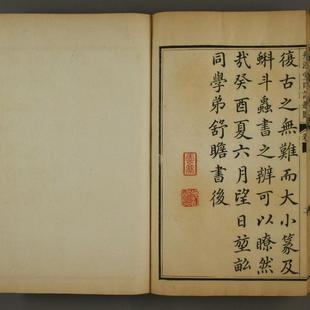 復古之無難而大小篆及
蝌斗蟲書之辨可以瞭然
哉癸酉夏六月望日堃畝
同學弟舒瞻書後